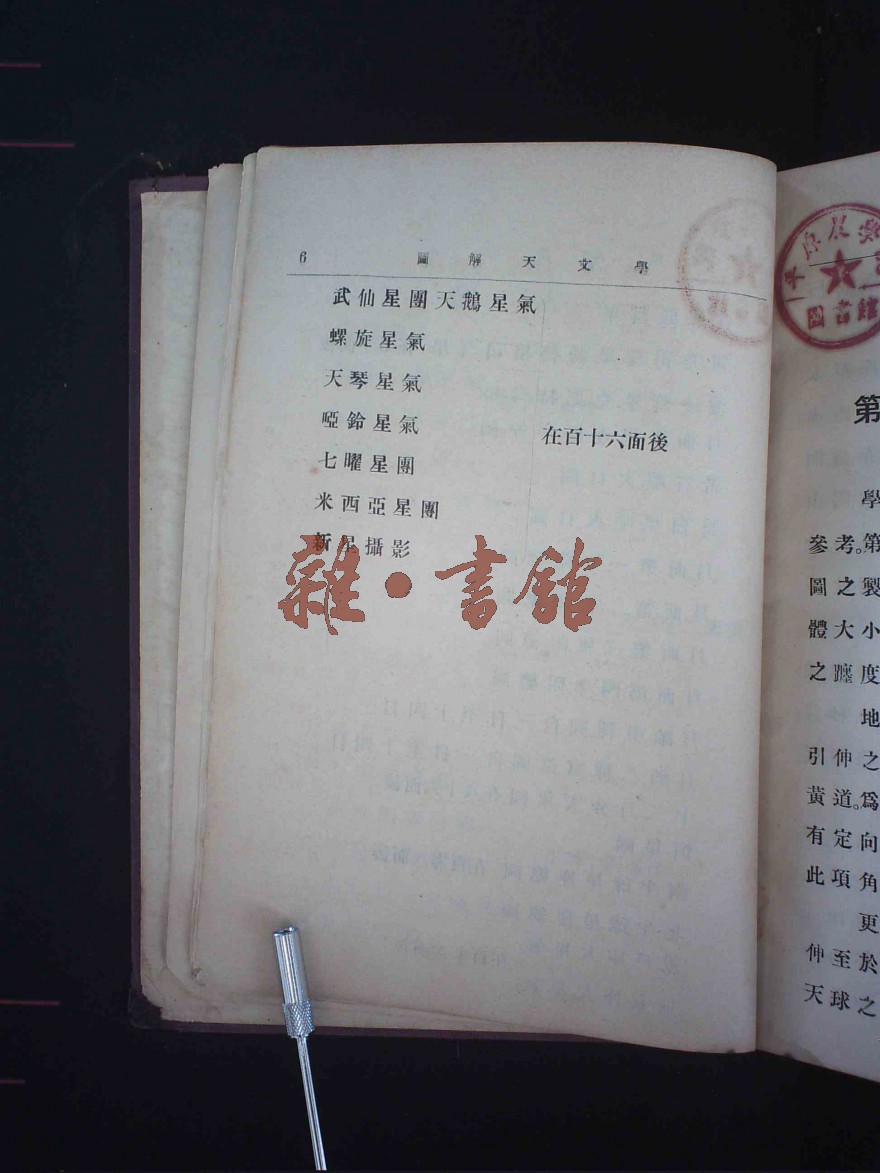 6 圖解天文學
武仙星團天鵝星氣
螺旋星氣
天琴星氣
啞鈴星氣
七曜星團
米西亞星團
新星攝影
在百十六面後
雜·書館
圖書館
第
學
參考。第
圖之製
體大小
之躔度
地
引伸之
黃道。爲
有定向
此項角
更
伸至於
天球之